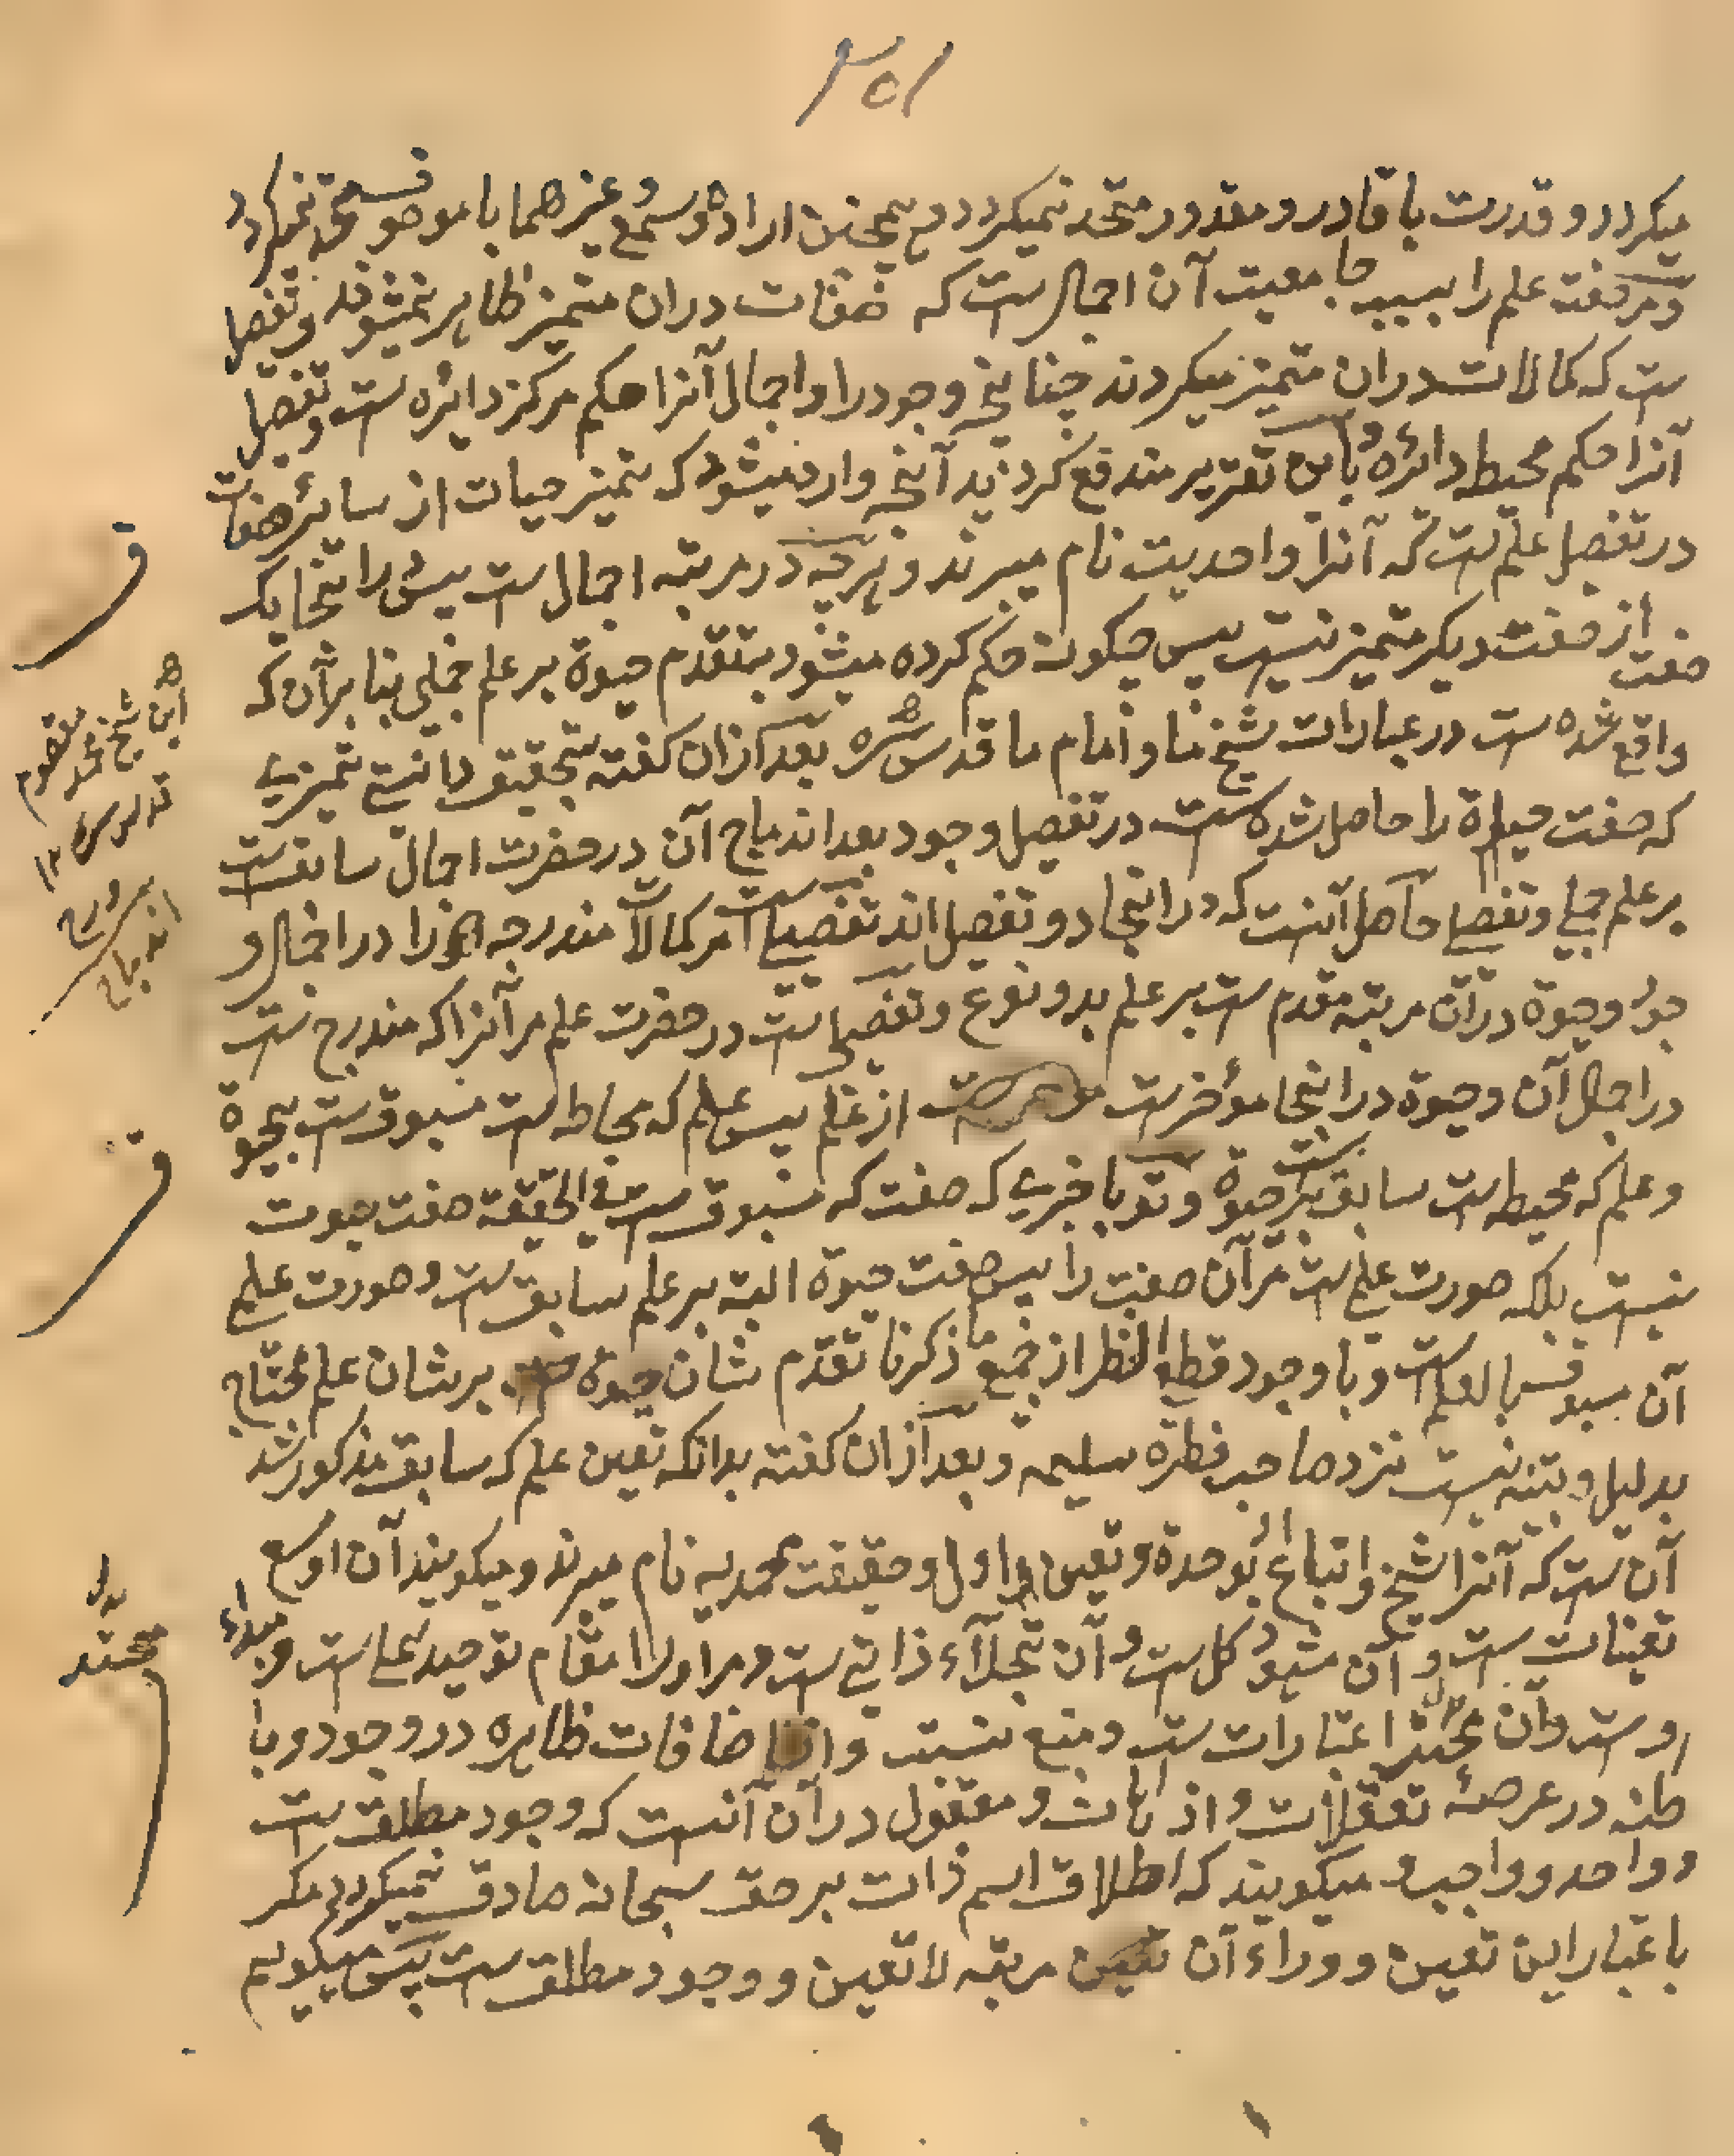 میکردد و قدرت با قادر و مقدور متحد نمیکردد و همچنین اراده و سمع و غیرهما با موصوف متحد نمیکردد
و مر صفت علم را بسبب جامعیت آن اجمال ست که صفات دران متمیز ظاهر نمیشوند و تفصیل
ست که کمالات دران متمیز میکردند چنانچه وجود را و اجمال آنرا حکم مرکز دایره ست و تفصیل
آنرا حکم محیط دائره و باین تقریر مندفع کردید آنچه وارد میشود که تمیز حیات از سائر صفات
در تفصیل علم ست که آنرا واحدیت نام میبرند و هرچه در مرتبه اجمال ست پس در اینجا یک
صفت از صفت دیکر متمیز نیست پس چکونه حکم کرده میشود بتقدم حیوة بر علم جملی بنا بر آن که
واقع شده ست در عبارات شیخ ما و امام ما قدس سره بعد ازان کفته بتحقیق دانستی تمیزی
که صفت حیوة را حاصل شده است در تفصیل وجود بعد اندماج آن در حضرت اجمال سابقست
بر علم جملی و تفصیلی حاصل آنست که در اینجا دو تفصیل اند تفصیلی ست مر کمالات مندرجه را در اجمال و
جود و حیوة در آن مرتبه مقدم ست بر علم بدو نوع و تفصیلی ست در حضرت علم مر آنرا که مندرج ست
در اجمال آن و حیوة در اینجا مؤخر ست از علم پس علم که محاط ست مسبوق ست بحیوة
و علم که محیط ست سابق ست بر حیوة و تو با خبری که صفت که مسبوق ست فی الحقیقة صفت حیوت
نیست بلکه صورت علم ست مر آن صفت را پس صفت حیوة البته بر علم سابق ست و صورت علمی
آن مسبوق بالعلم ست و با وجود قطع النظر از جمیع ما ذکرنا تقدم شان حیوة بر شان علم محتاج
بدلیل و بینه نیست نزد صاحب فطرة سلیمه و بعد ازان کفته بدانکه تعین علم که سابق مذکور شد
آن ست که آنرا شیخ و اتباع او بوحدة و تعین اول و حقیقت محمدیه نام میبرند و میکویند آن اوسع
تعینات ست و آن مشهود کل ست و آن تجلی ذاتی ست و مر او را مقام توحید اعلی ست و مبداء
او ست و آن محتد اعتبارات ست و منبع نسبت و اضافات ظاهره در وجود و با
طنه در عرصۀ تعقلات و اذهان و مقول در آن آنست که وجود مطلق ست
و واحد و واجب و میکویند که اطلاق اسم ذات بر حق سبحانه صادق نمیکردد مکر
باعتبار این تعین و وراء آن تعین مرتبه لا تعین و وجود مطلق ست پس میکویم
ف
این شیخ محمد معصوم
قدس سره ۱۲
ف
محتد